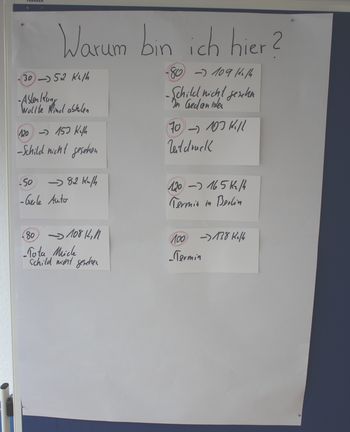 Warum bin ich hier?
30 → 52 Km/h
- Ablenkung
wollte Kind abholen
120 → 157 Km/h
- Schild nicht gesehen
50 → 82 Km/h
- Geile Auto
80 → 108 Km/h
- Tote Mück
Schild nicht gesehen
80 → 109 Km/h
- Schild nicht gesehen
in Gedanken
70 → 103 Km/h
Zeitdruck
120 → 165 Km/h
- Termin in Berlin
100 → 138 Km/h
- Termin